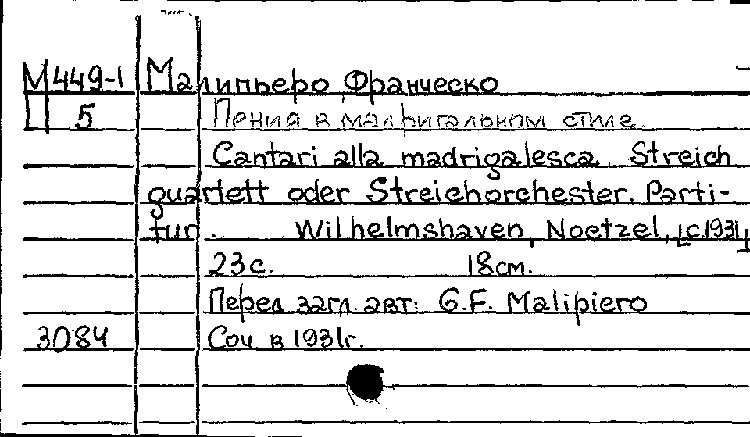 М449-1 Малипьеро Франческо
П 5 Пения в мадригальном стиле.
Cantari alla madrigalesca. Streich
quartett oder Streichorchester. Parti-
tur. Wilhelmshaven, Noetzel, [c.1931]
23с. 18см.
Перед загл. авт: G.F. Malipiero
3084 Соч. в 1931г.